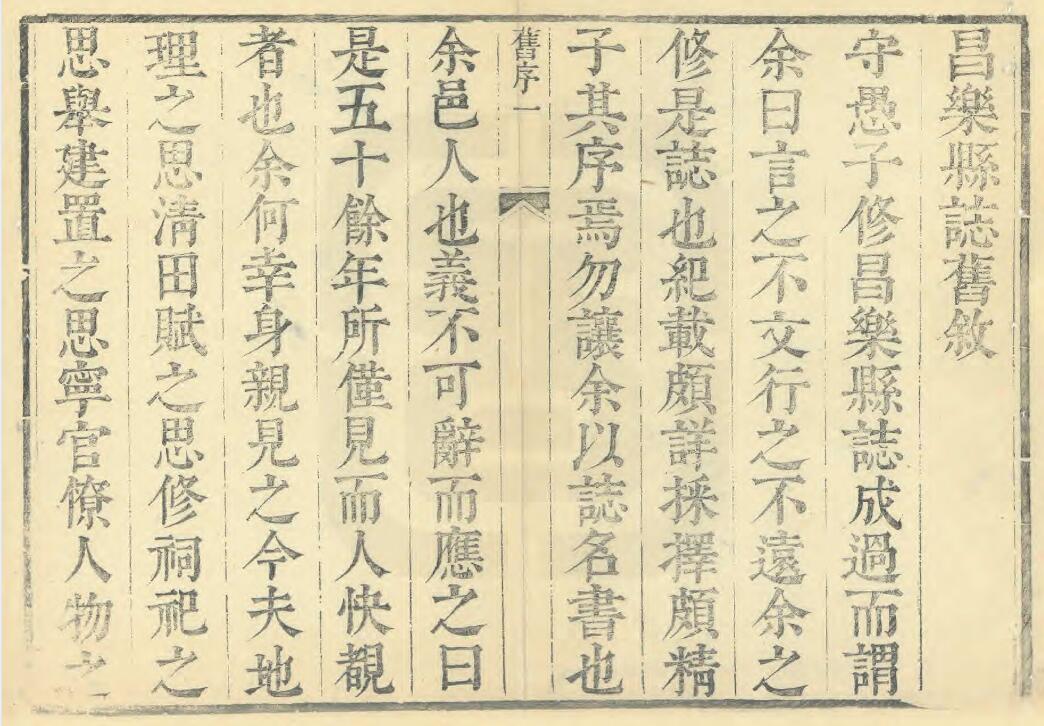 昌樂縣誌舊敘
守愚子修昌樂縣誌成過而謂
余曰言之不文行之不遠余之
修是誌也紀載頗詳採擇頗精
子其序焉勿讓余以誌名書也
舊序一
余邑人也義不可辭而應之曰
是五十餘年所僅見而人快覩
者也余何幸身親見之今夫地
理之思清田賦之思修祠祀之
思舉建置之思寧官僚人物之